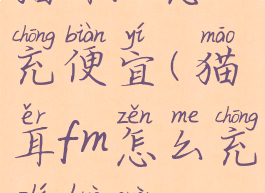 chōng biàn yí māo
充便宜(猫
ěr zěn me chōng
耳fm怎么充